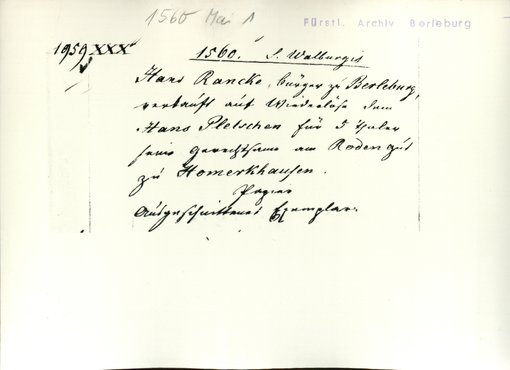 1560 Mai 1
Fürstl. Archiv Berleburg
1959 XXX
1560. S. Walburgis
Hans Rancke, bürger zu Berleburg,
verkauft auf Wiederlöse dem
Hans Pletschen für 5 thaler
seine gerechtsame am Roden gut
zu Homerkhausen.
Papier
Ausgeschnittenes Exemplar.